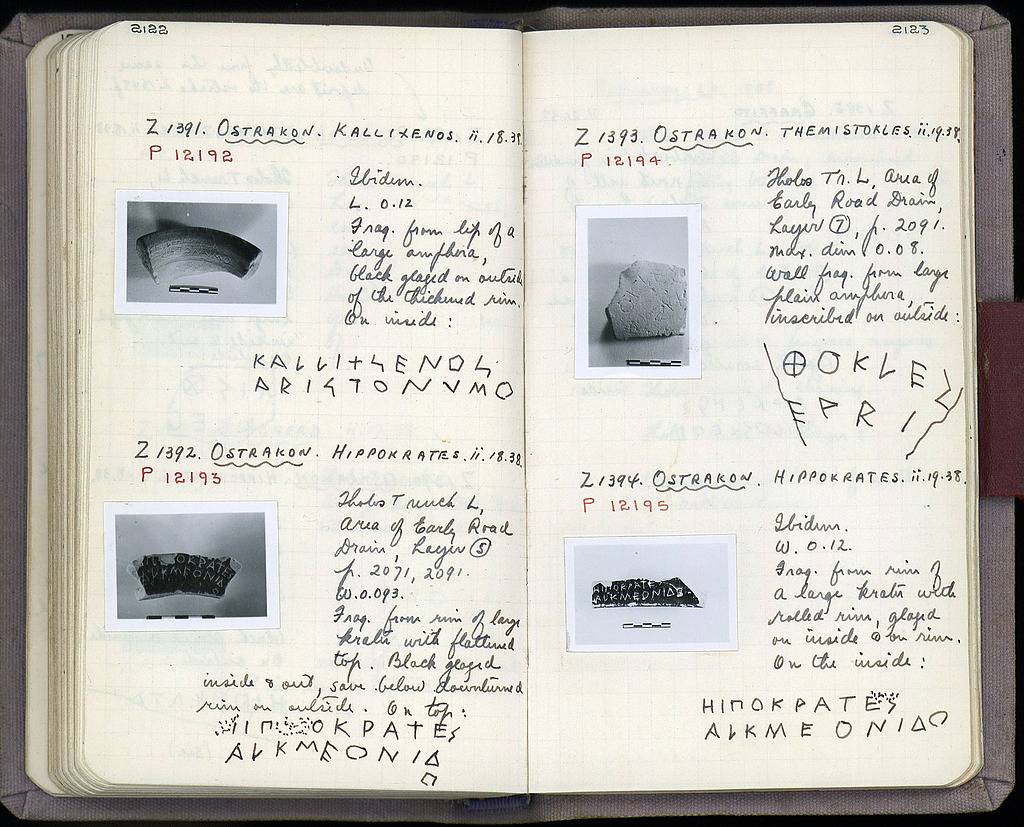 2122
Z 1391. OSTRAKON. KALLIXENOS. ii.18.38.
P 12192
Ibidem.
L. 0.12
Frag. from lip of a
large amphora,
black glazed on outside
of the thickened rim.
On inside:
KALLIXSENOS
ARISTONVMO
Z 1392. OSTRAKON. HIPPOKRATES. ii.18.38.
P 12193
Tholos Trench L,
Area of Early Road
Drain, Layer ⑤
p. 2071, 2091.
W. 0.093.
Frag. from rim of large
krater with flattened
top. Black glazed
inside & out, save below downturned
rim on outside. On top:
ΗΙΠΠΟΚΡΑΤΕS
ALKMEONIΔ
Ο
2123
Z 1393. OSTRAKON. THEMISTOKLES. ii.19.38.
P 12194
Tholos Tr. L, Area of
Early Road Drain,
Layer ⑦, p. 2091.
max. dim 0.08.
Wall frag. from large
plain amphora,
inscribed on outside:
⊕OKLE
FPRI
Z 1394. OSTRAKON. HIPPOKRATES. ii.19.38.
P 12195
Ibidem.
W. 0.12.
Frag. from rim of
a large krater with
rolled rim, glazed
on inside & on rim.
On the inside:
ΗΙΠΟΚΡΑΤΕS
ALKMEONIΔO